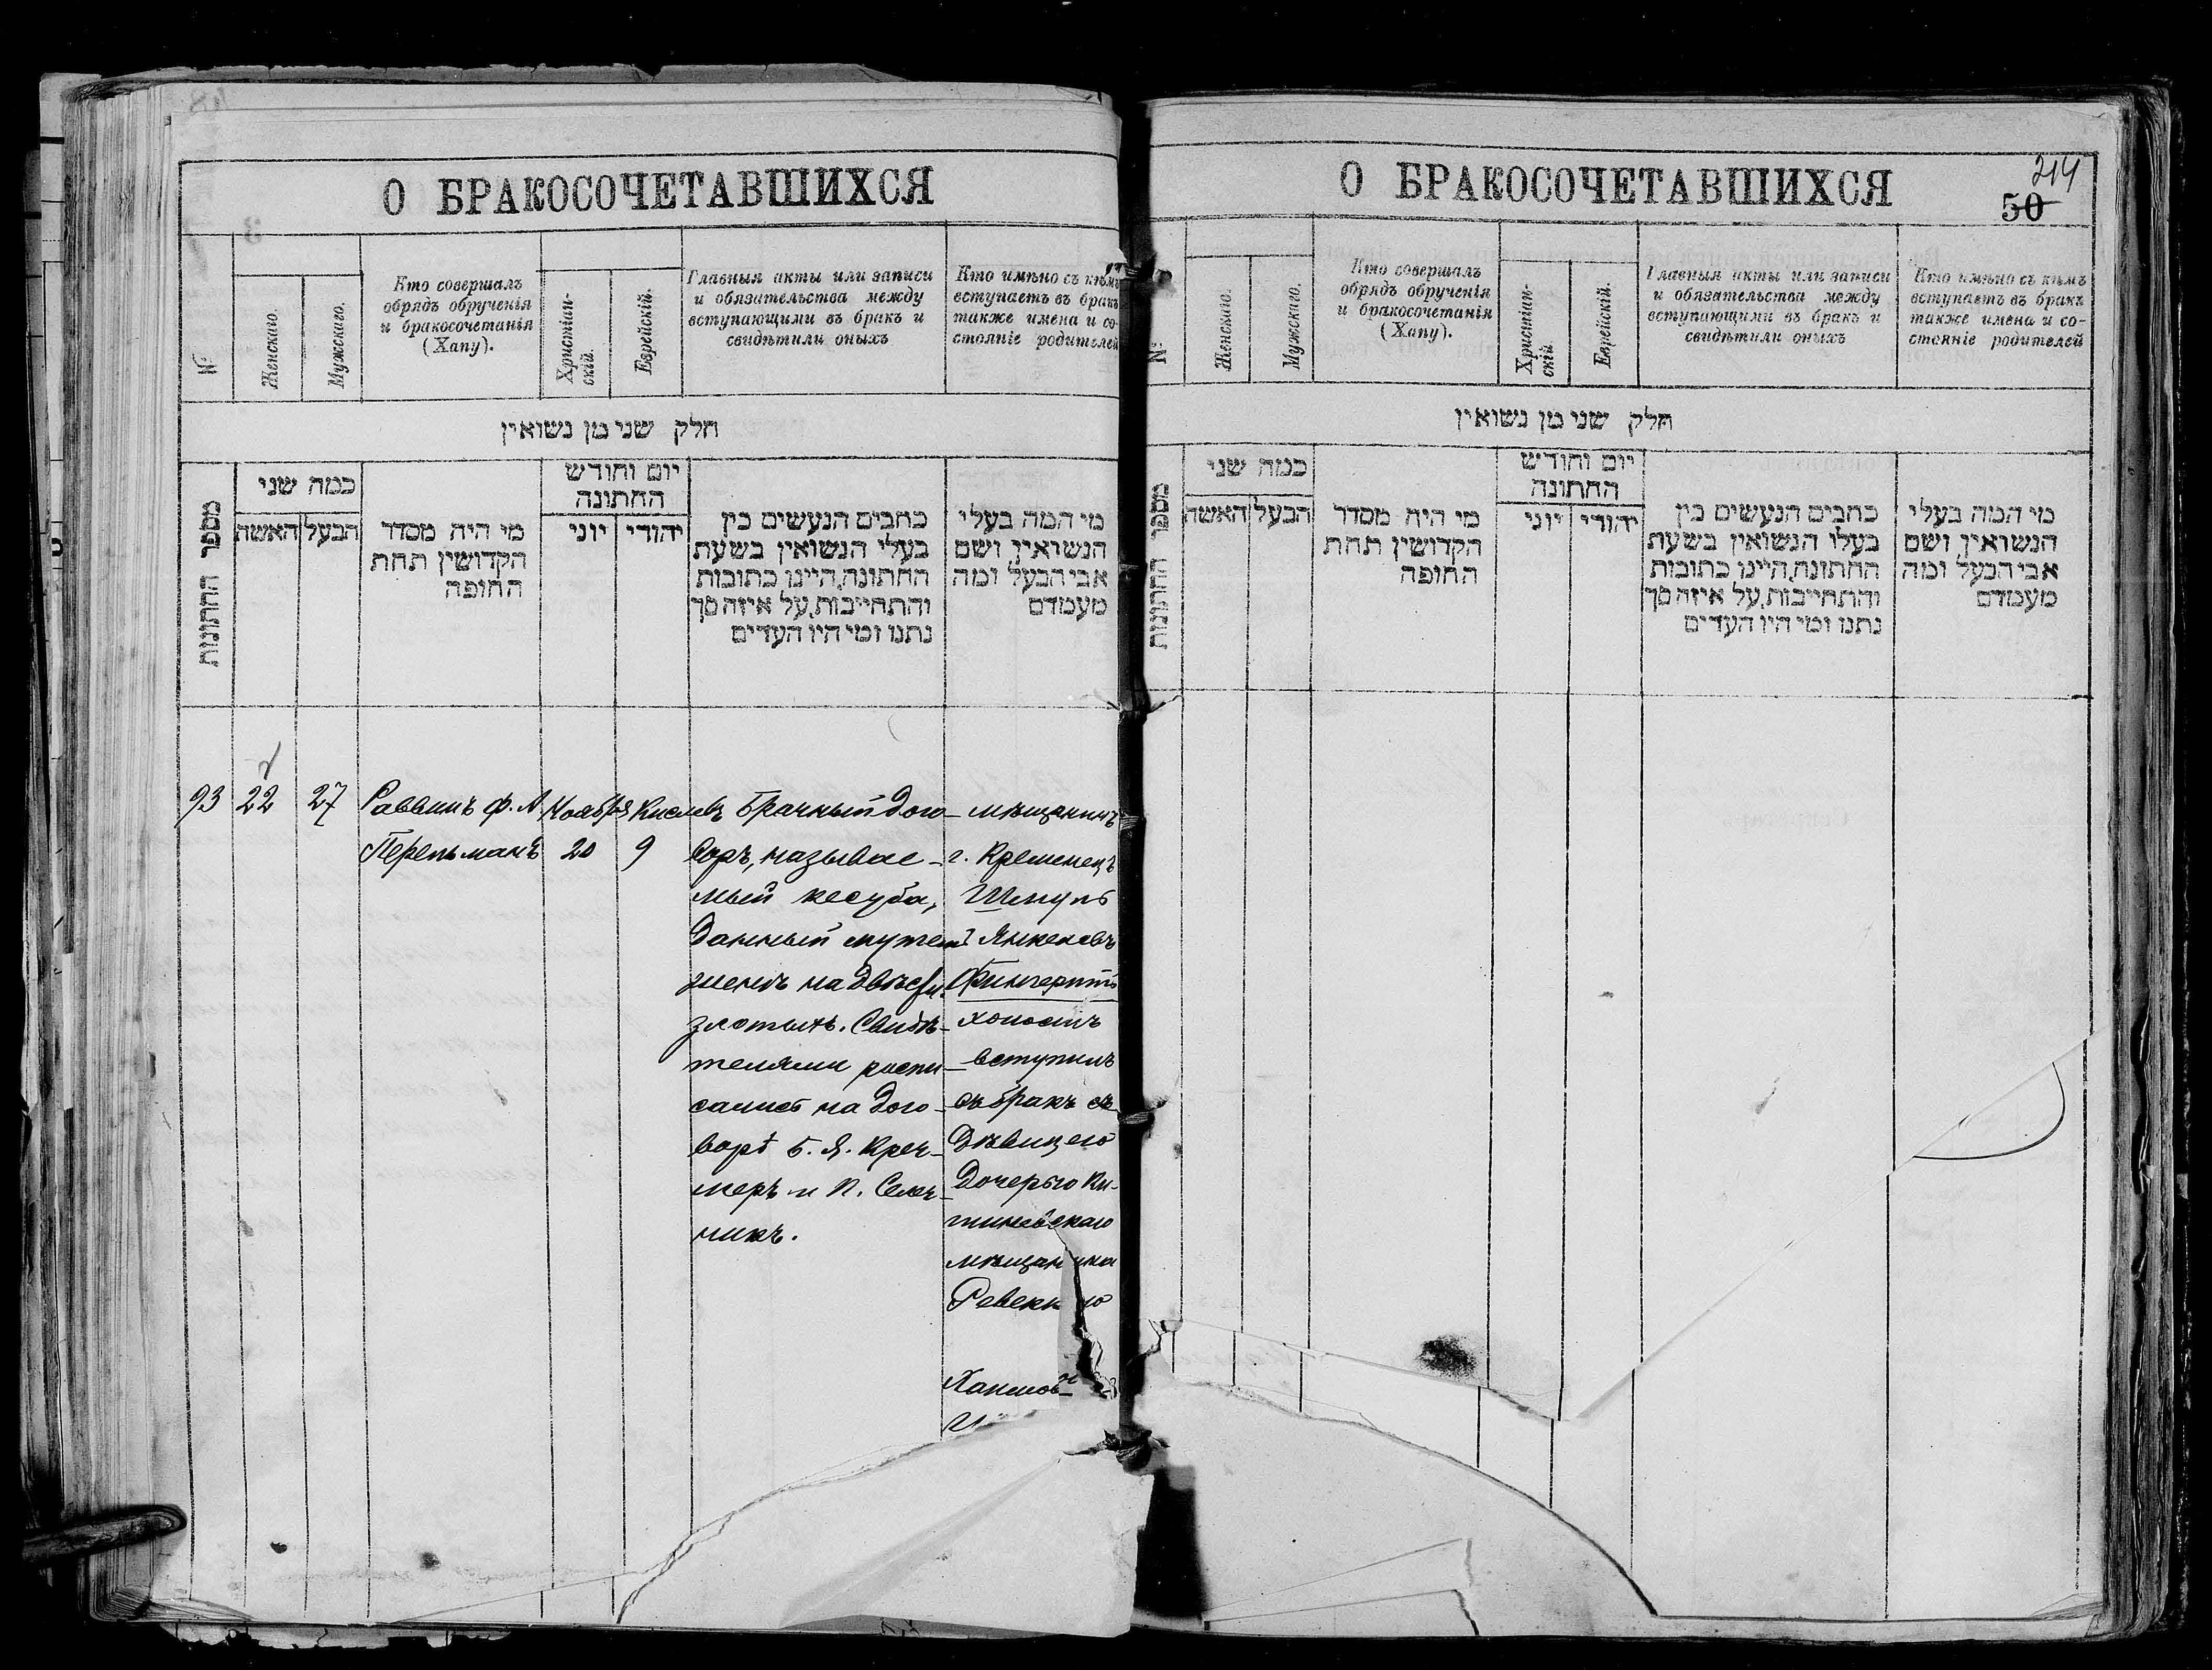 О БРАКОСОЧЕТАВШИХСЯ
№
Женскаго.
Мужскаго.
Кто совершалъ
обрядъ обрученія
и бракосочетанія
(Хапу).
Христіан-
скій.
Еврейскій.
Главныя акты или записи
и обязательства между
вступающими въ бракъ и
свидѣтили оныхъ
Кто имѣно съ кѣмъ
вступаетъ въ бракъ
также имена и со-
стояніе родителей
חלק שני מן נשואין
מספר החתונות
כמה שני
האשה
הבעל
מי היה מסדר
הקדושין תחת
החופה
יום וחודש
החתונה
יוני
יהודי
כתבים הנעשים בין
בעלי הנשואין בשעת
החתונה, היינו כתובות
והתחייבות, על איזה סך
נתנו ומי היו העדים
מי המה בעלי
הנשואין, ושם
אבי הבעל ומה
מעמדם
93
22
27
Раввинъ Ф. А.
Перельманъ
Ноября
20
Кислевъ
9
Брачный дого-
воръ, называе-
мый кесуба,
данный мужемъ
женѣ на двѣсти
злотыхъ. Свидѣ-
телями распи-
сались на дого-
ворѣ Б. Я. Креч-
меръ и П.
никъ.
мѣщанинъ
г. Кременецъ
Шмуль
Янкелевъ
Фингерутъ
холостъ
вступилъ
въ бракъ съ
дѣвицею
дочерью Ки-
шиневскаго
мѣщанина
О БРАКОСОЧЕТАВШИХСЯ
214
50
№
Женскаго.
Мужскаго.
Кто совершалъ
обрядъ обрученія
и бракосочетанія
(Хапу).
Христіан-
скій.
Еврейскій.
Главныя акты или записи
и обязательства между
вступающими въ бракъ и
свидѣтили оныхъ
Кто имѣно съ кѣмъ
вступаетъ въ бракъ
также имена и со-
стояніе родителей
חלק שני מן נשואין
מספר החתונות
כמה שני
האשה
הבעל
מי היה מסדר
הקדושין תחת
החופה
יום וחודש
החתונה
יוני
יהודי
כתבים הנעשים בין
בעלי הנשואין בשעת
החתונה, היינו כתובות
והתחייבות, על איזה סך
נתנו ומי היו העדים
מי המה בעלי
הנשואין, ושם
אבי הבעל ומה
מעמדם